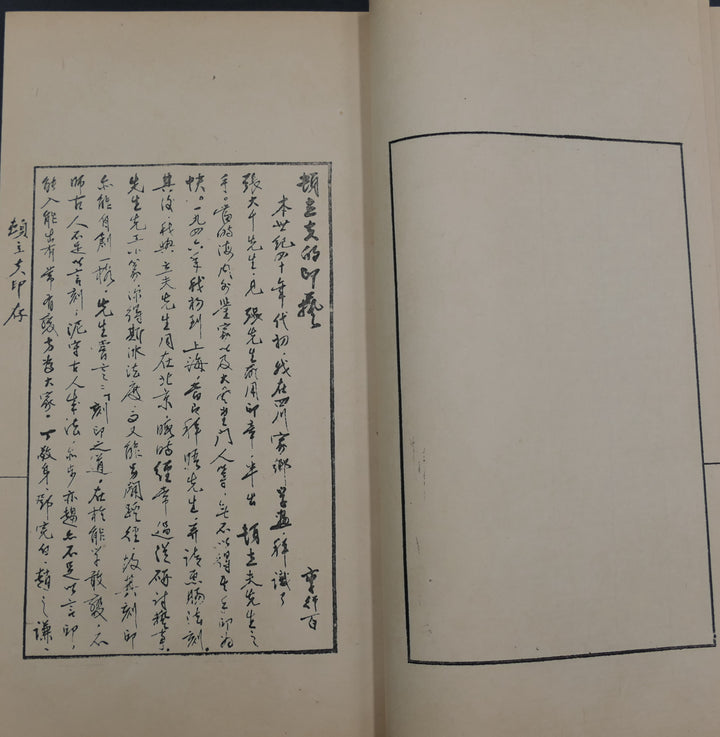 頓立夫的印藝
李行百
本世紀四十年代初，我在四川家鄉學畫，拜識了
張大千先生，見張先生所用印章，半出頓立夫先生之
手。當時海內外鑒家以及大風堂門人等，無不以得其一印為
快。一九四六年我初到上海，首即拜晤先生，并請惠賜法刻。
其後，我與立夫先生同在北京，暇時經常過從研討藝事。
先生先工小篆，深得斯冰法度，而又能另闢蹊徑，故其刻印
亦能自創一格。先生嘗言：「刻印之道，在於能學敢變，不
師古人不足以言刻；泥守古人成法，亦步亦趨亦不足以言印，
能入能出有常有變方為大家。」丁敬身、鄧完白、趙之謙、
頓立夫印存